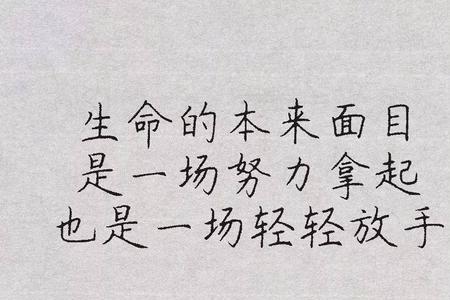 生命的本来面目
是一场努力拿起
也是一场轻轻放手